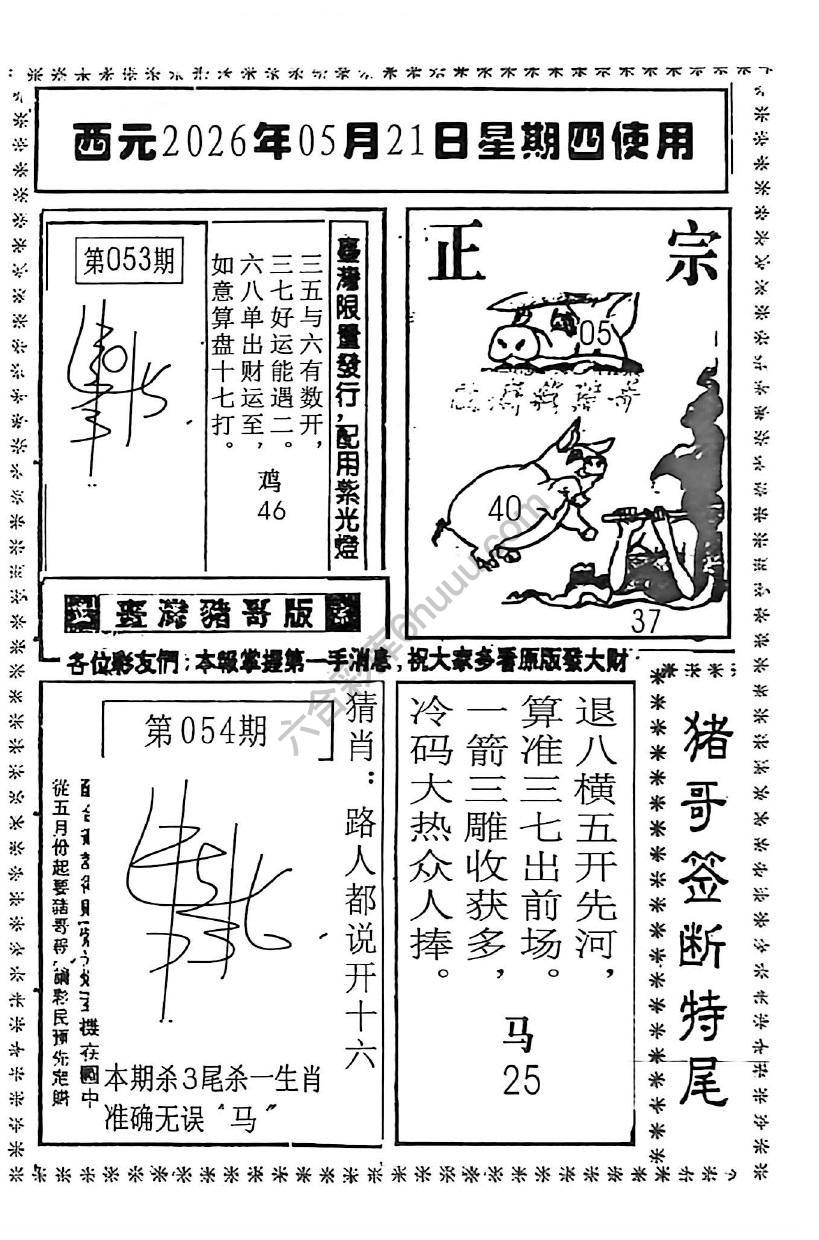 西元2026年05月21日星期四使用
第053期
三五与六有数开，
三七好运能遇二。
六八单出财运至，
如意算盘十七打。
鸡
46
臺灣限量發行，配用紫光燈
正 宗
05
40
37
臺灣豬哥版
各位彩友們：本報掌握第一手消息，祝大家多看原版發大財
第054期
猜肖：路人都说开十六
從五月份起要豬哥報
彩民預先定購
機在國中
本期杀3尾杀一生肖
准确无误“马”
退八横五开先河，
算准三七出前场。
一箭三雕收获多，
冷码大热众人捧。
马
25
猪哥签断特尾
六合彩库6huuu.com